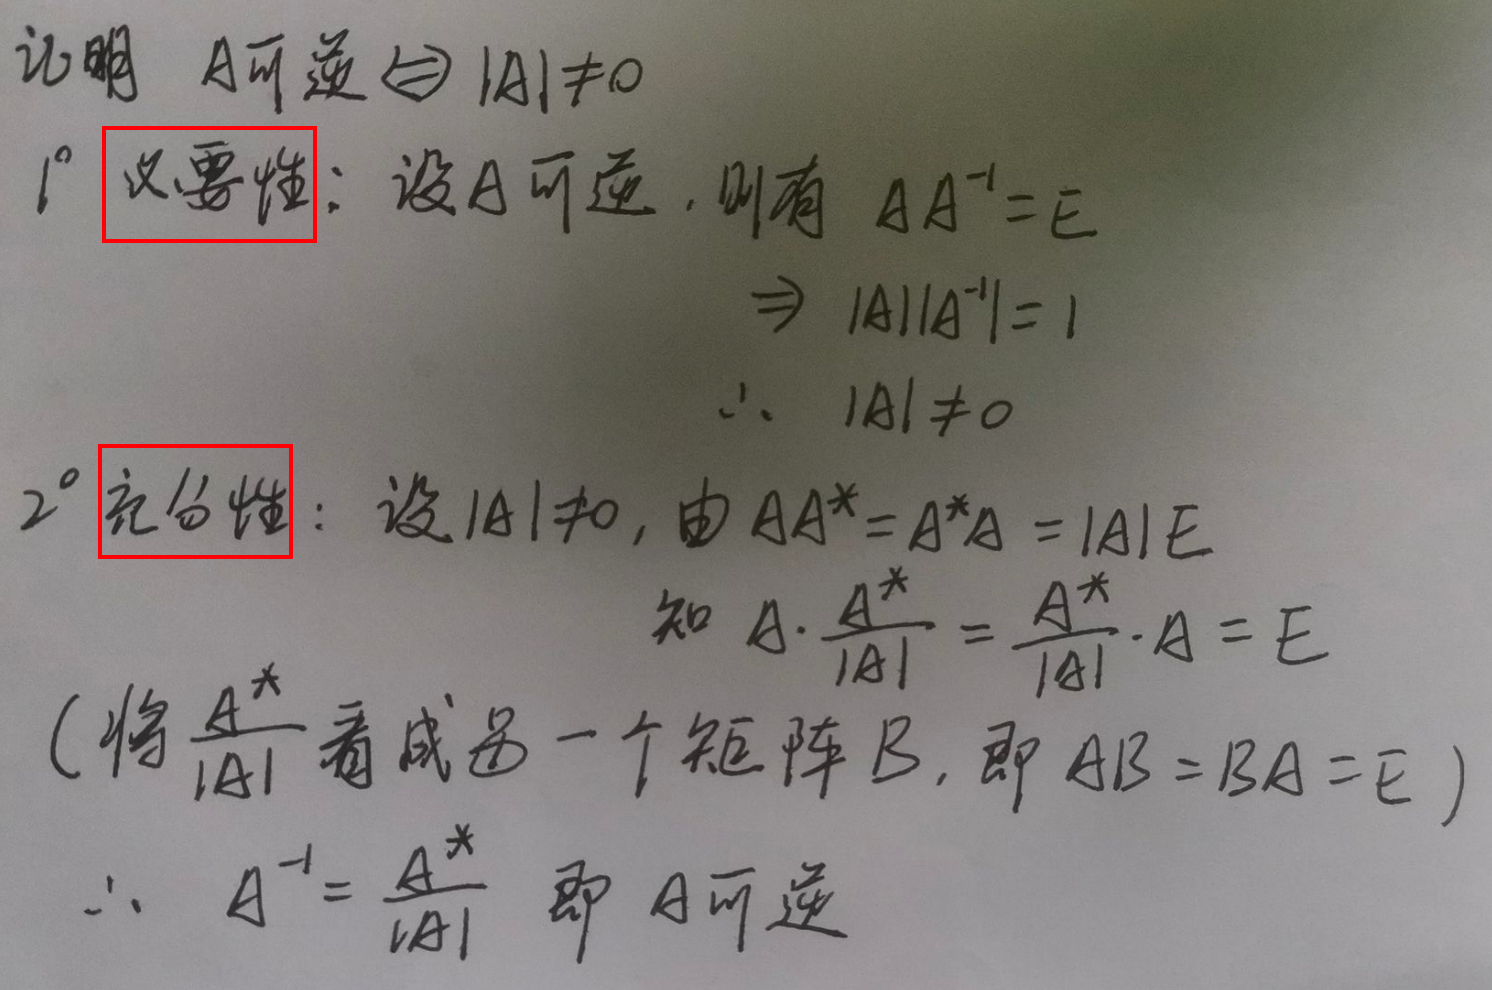 证明 A可逆⇔|A|≠0
1° 必要性: 设A可逆, 则有 AA⁻¹=E
⇒ |A||A⁻¹|=1
∴ |A|≠0
2° 充分性: 设|A|≠0, 由AA*=A*A=|A|E
知 A·A*/|A| = A*/|A|·A = E
(将A*/|A|看成另一个矩阵B, 即AB=BA=E)
∴ A⁻¹=A*/|A| 即 A可逆